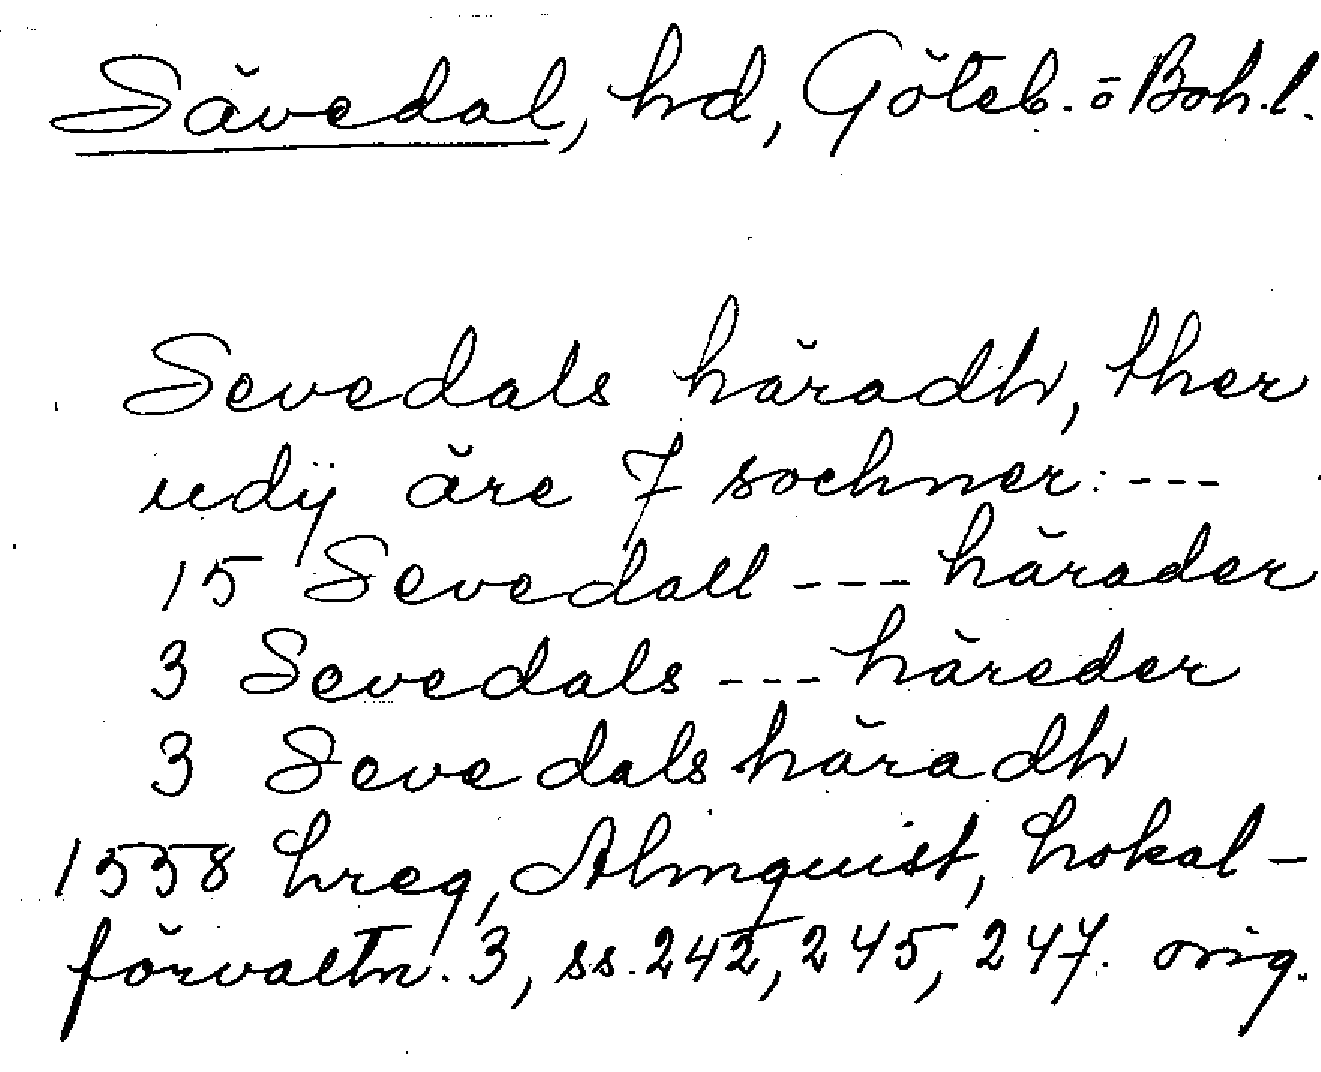 Sävedal, hd, Göteb. o Boh. l.
Sevedals häradh, ther
udij äre 7 sochner: ---
15 Sevedall --- härader
3 Sevedals --- häreder
3 Sevedals häradh
1558 Lreg, Almquist, Lokal-
förvaltn. 3, ss. 242, 245, 247. orig.